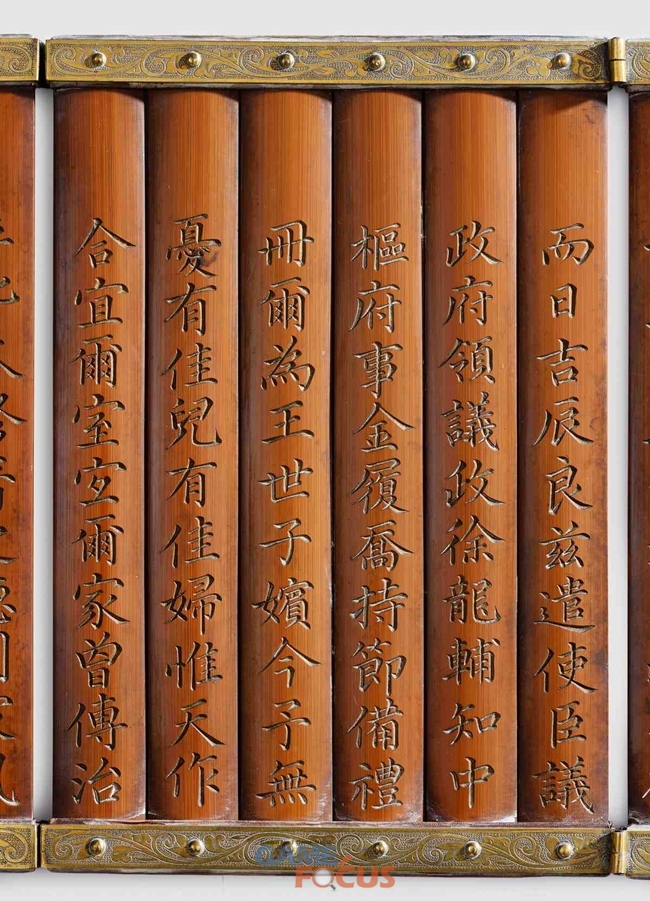 而日吉辰良茲遣使臣議
政府領議政徐龍輔知中
樞府事金履喬持節備禮
冊爾為王世子嬪今予無
憂有佳兒有佳婦惟天作
合宜爾室宐爾家曾傳治
FOCUS